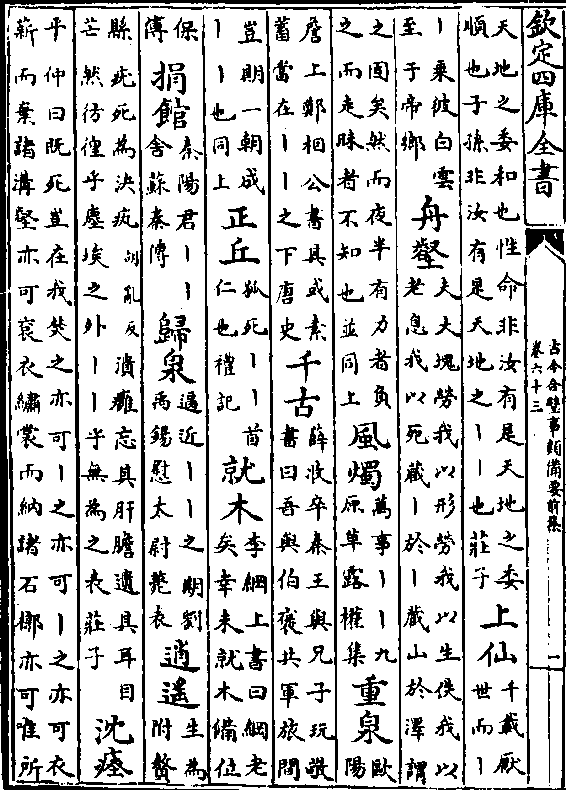 欽定四庫全書
古今合璧事類備要前集
卷六十三
一
天地之委和也性命非汝有是天地之委
順也子孫非汝有是天地之丨丨也莊子
上仙
千歲厭
世而丨
丨乘彼白雲
至于帝鄉
舟壑
夫大塊勞我以形勞我以生佚我以
老息我以死藏丨於丨藏山於澤謂
之固矣然而夜半有力者負
之而走昧者不知也並同上
風燭
萬事丨丨九
原草露權集
重泉
歐
陽
詹上鄭相公書具或素
蓄當在丨丨之下唐史
千古
薛收卒秦王與兄子玩敬
書曰吾與伯褒共軍旅間
豈期一朝成
丨丨也同上
正丘
狐死丨丨首
仁也禮記
就木
李綱上書曰綱老
矣幸未就木備位
保
傅
捐館
秦陽君丨丨
舍蘇秦傳
歸泉
遄近丨丨之期劉
禹錫慰太尉薨表
逍遥
生為
附贅
縣疣死為決疣胡亂反潰癰忘其肝膽遺其耳目
芒然彷徨乎塵埃之外丨丨乎無為之表莊子
沈瘞
平仲曰既死豈在我焚之亦可丨之亦可丨之亦可衣
薪而棄諸溝壑亦可衮衣繡裳而納諸石槨亦可唯所